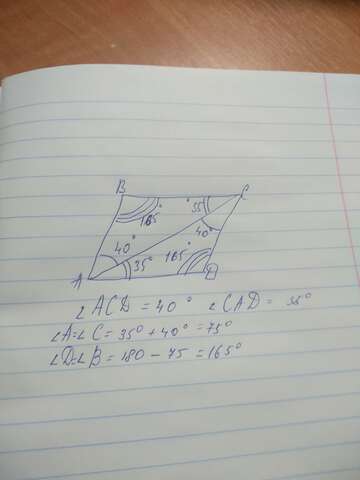 B C
165° °35
40°
40° 35° 165°
A D
∠ACD = 40° ∠CAD = 35°
∠A=∠C= 35°+40°=75°
∠D=∠B= 180-75=165°